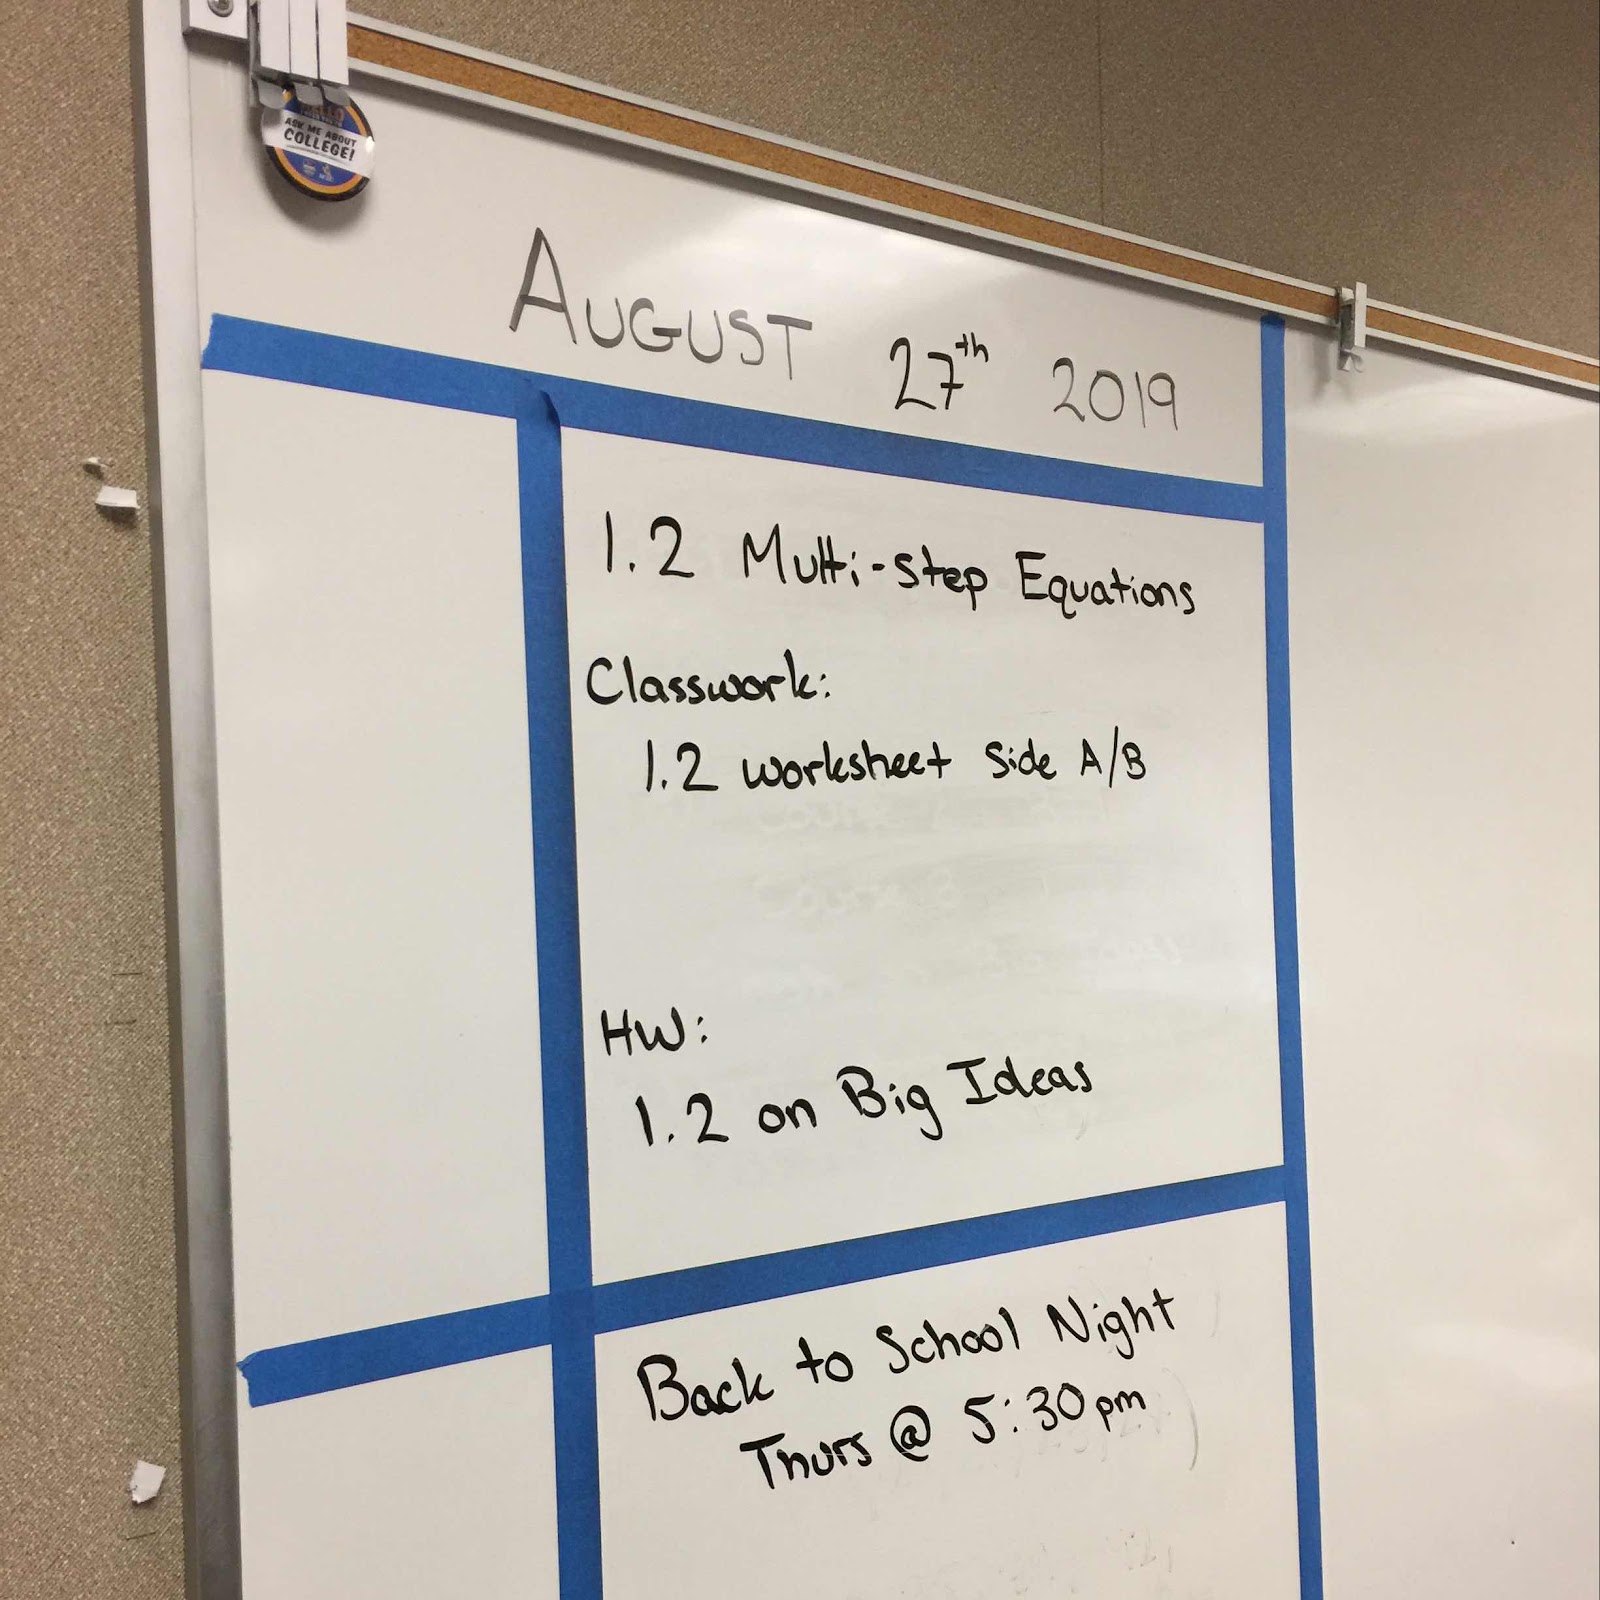 HELLO
ASK ME ABOUT
COLLEGE!
AUGUST 27th 2019
1.2 Multi-step Equations
Classwork:
1.2 worksheet Side A/B
HW:
1.2 on Big Ideas
Back to School Night
Thurs @ 5:30pm